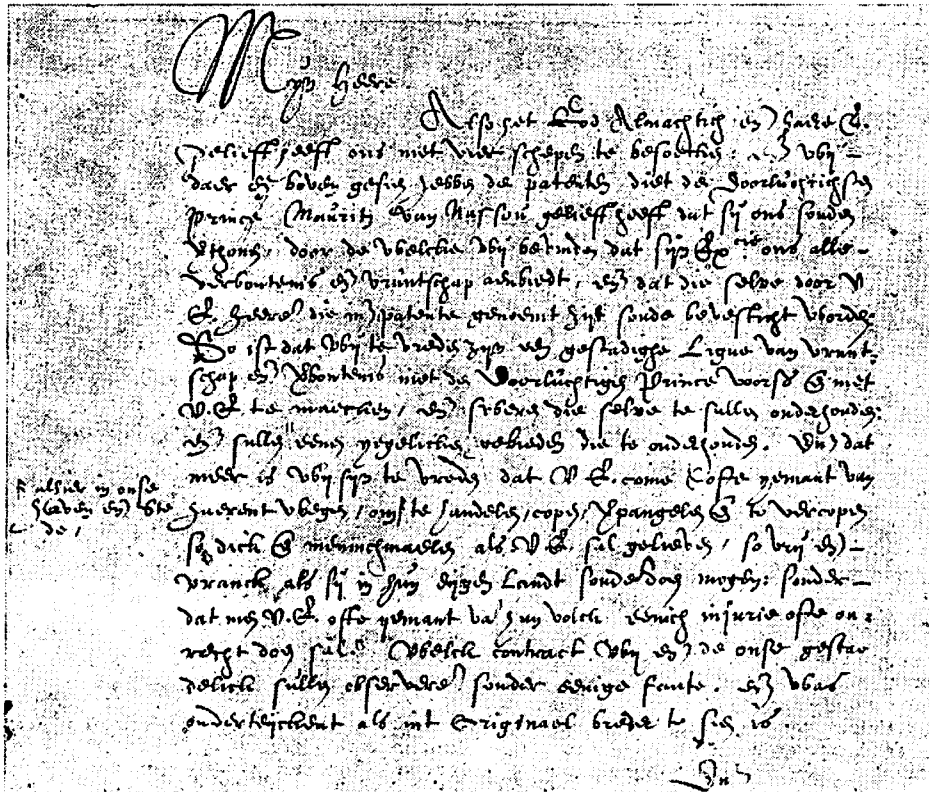 Mijn Heere
Also het God Almachtich en haere E.
gelieft heeft ons met vier schepen te besoecken: en wij
daer en boven gesien hebben de patenten diet de Doorluchtichsten
Prince Mauritz van Nassou gelieft heeft dat sij ons souden
thonen, door de welcke wij bevinden dat sijn Excie ons alle
verbontenis en vruntschap aenbiedt, en dat die selve door U
E. Heere die in patente genoemt zijt soude bevesticht worden:
So ist dat wij te vreden zijn een gestadighe Ligue van vrunt-
schap en verbontenis met de Doorluchtigen Prince voorsd & met
U.E. te maecken, en sweren die selve te sullen onderhouden:
en sullen eenen yegelicken gebieden die te onderhouden. Und dat
meer is wij sijn te vreden dat U E. come ofte yemant van
alhier in onse
haven en Ste
de,
huerent wegen, om te handelen, copen, & te vercopen
so dick & menichmaelen als U E. sal gelieven, so vrij en
vranck als sij in hun eijgen Landt soude doen mogen: sonder
dat men U.E. ofte yemant va hun volck eenich injurie ofte on-
recht doen sale. Welck contract wij en de onse gesta
delick sullen observeren sonder eenige faute. En was
onderteijckent als int Originael breder te sien is.